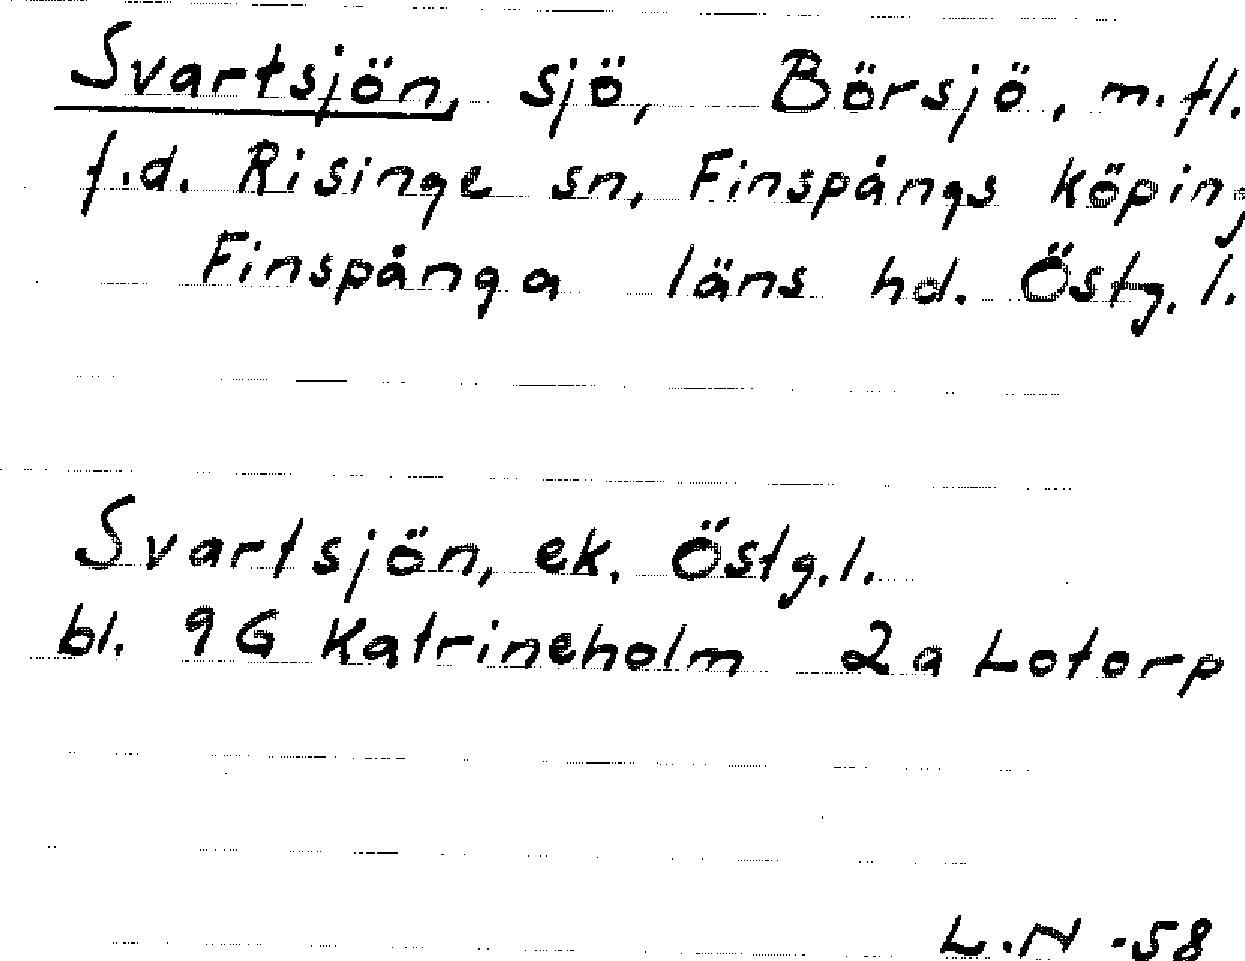 Svartsjön, sjö, Börsjö, m.fl.
f.d. Risinge sn, Finspångs köping
Finspånga läns hd. Östg.l.
Svartsjön, ek. Östg.l.
bl. 9G Katrineholm 2a Lotorp
L.N -58